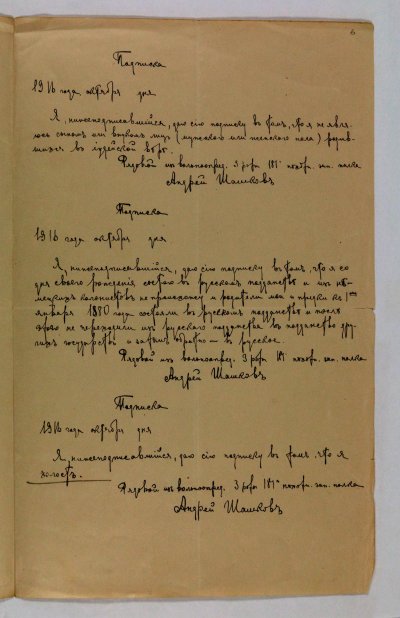 6
Подписка
1916 года октября дня
Я, нижеподписавшийся, даю сію подписку въ томъ, что я не явля-
юсь сыномъ или внукомъ лицъ (мужского или женского пола) родив-
шихся въ іудейской вѣрѣ.
Рядовой изъ вольноопред. 3 роты 181 пѣхотн. зап. полка
Андрей Шашковъ
Подписка
1916 года октября дня
Я, нижеподписавшийся, даю сію подписку въ томъ, что я со
дня своего рожденія состою въ русскомъ подданствѣ и изъ нѣ-
мецкихъ колонистовъ не происхожу и родители мои и предки къ 1му
января 1880 года состояли въ русскомъ подданствѣ и послѣ
этого не переходили изъ русскаго подданства въ подданство дру-
гихъ государствъ и затѣмъ обратно – въ русское.
Рядовой изъ вольноопред. 3 роты 181 пѣхотн. зап. полка
Андрей Шашковъ
Подписка
1916 года октября дня
Я, нижеподписавшийся, даю сію подписку въ томъ, что я
холостъ.
Рядовой изъ вольноопред. 3 роты 181го пѣхотн. зап. полка
Андрей Шашковъ